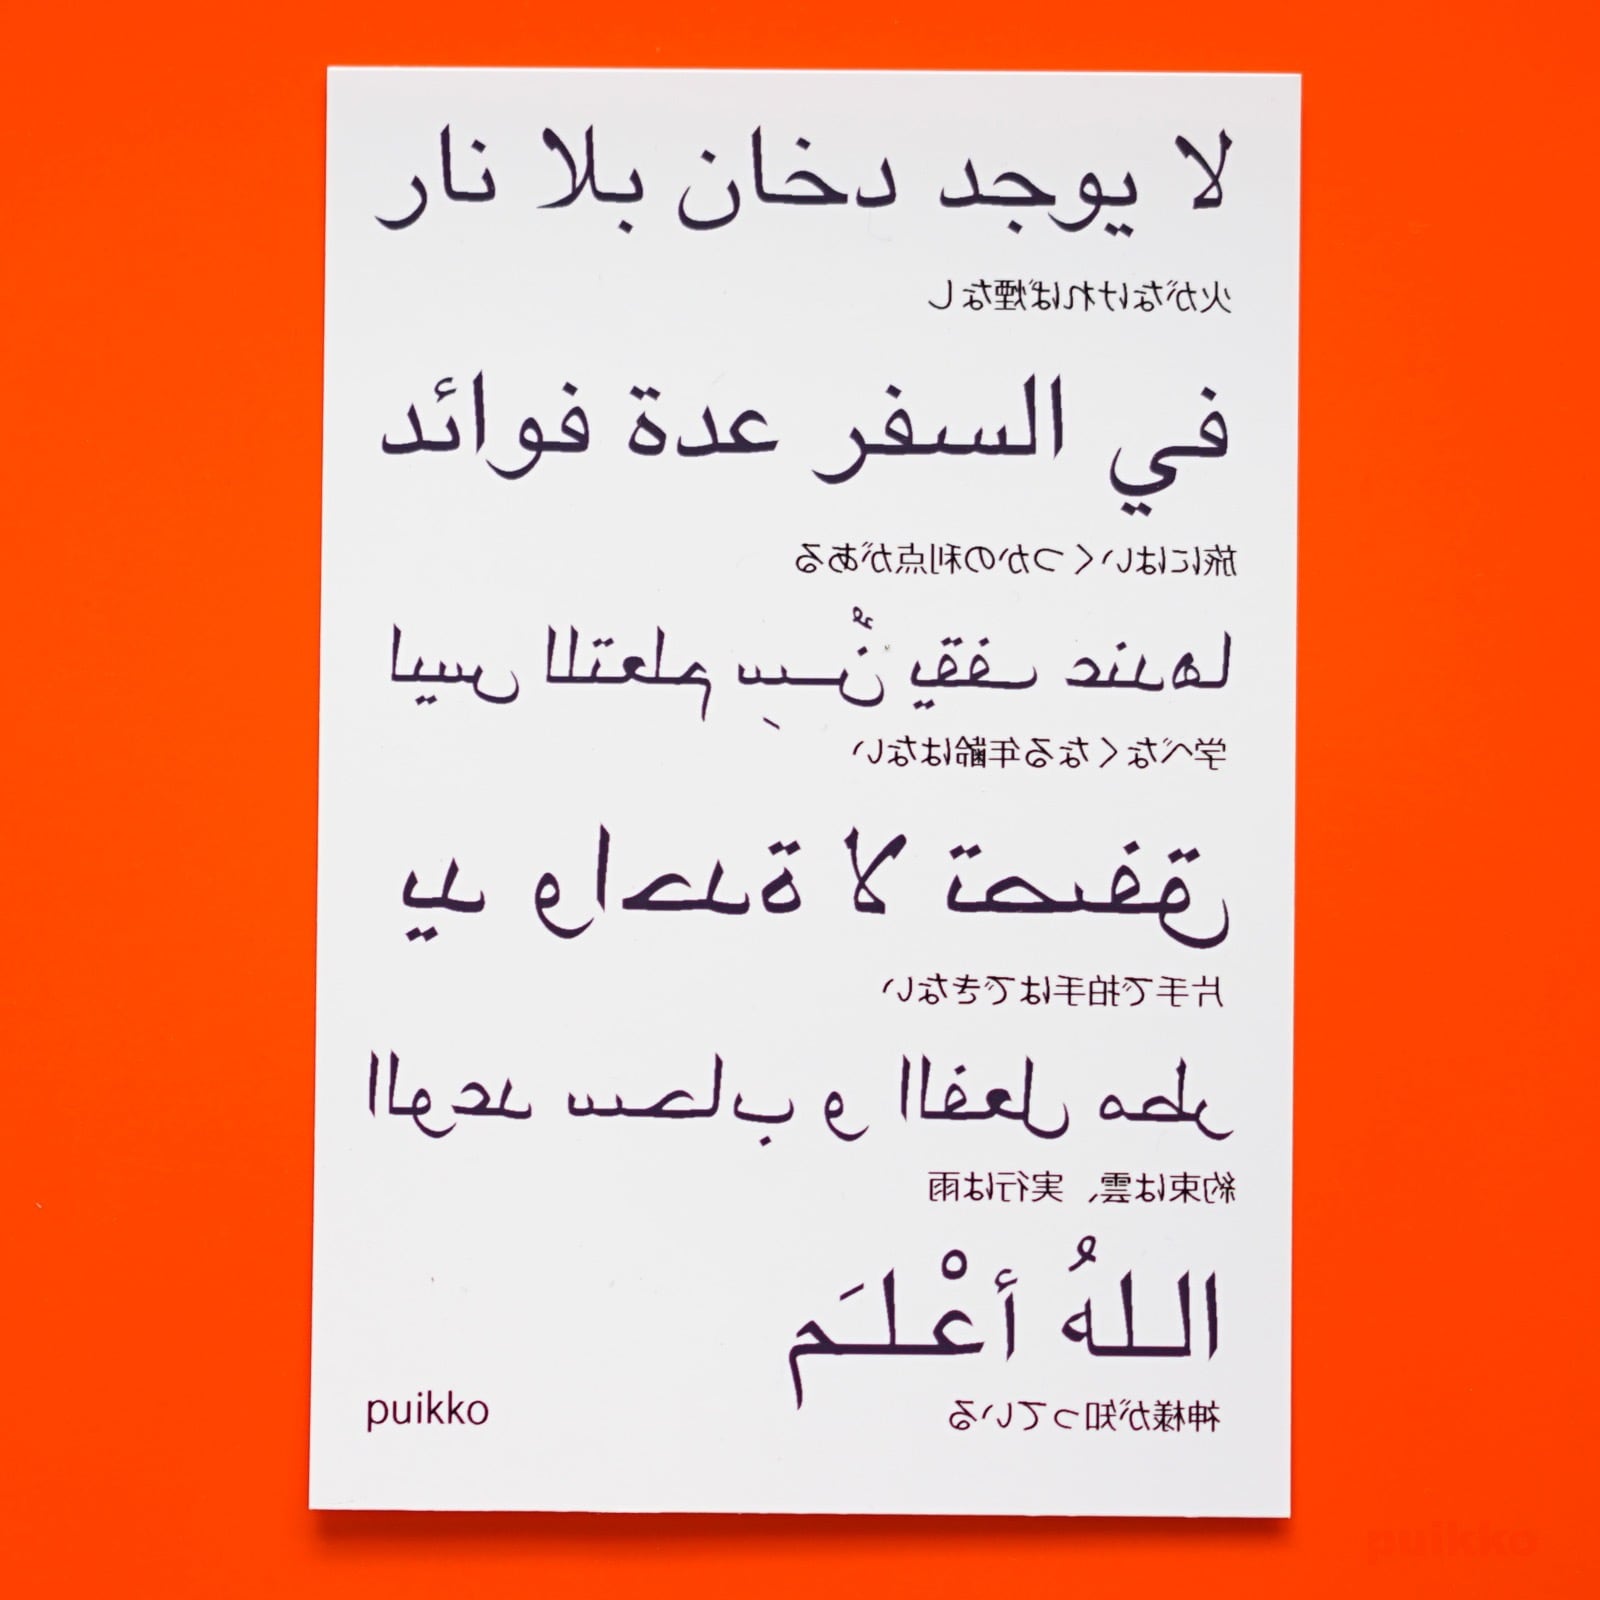 لا يوجد دخان بلا نار
火がなければ煙なし
في السفر عدة فوائد
旅にはいくつかの利点がある
ليس للتعلم سِنٌ يقف عندها
学べなくなる年齢はない
يد واحدة لا تصفق
片手で拍手はできない
الوعد سحاب و الفعل مطر
約束は雲、実行は雨
اللهُ أعْلَم
神様が知っている
puikko
puikko